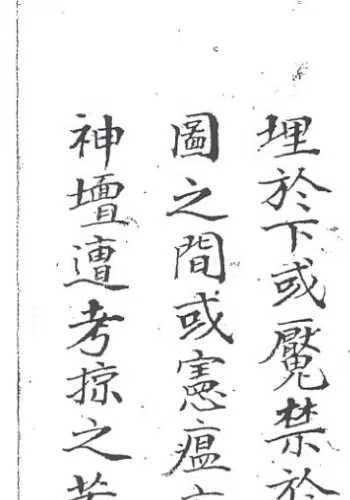 埋於下或魘禁於
圖之間或憲瘟
神壇遭考掠之苦